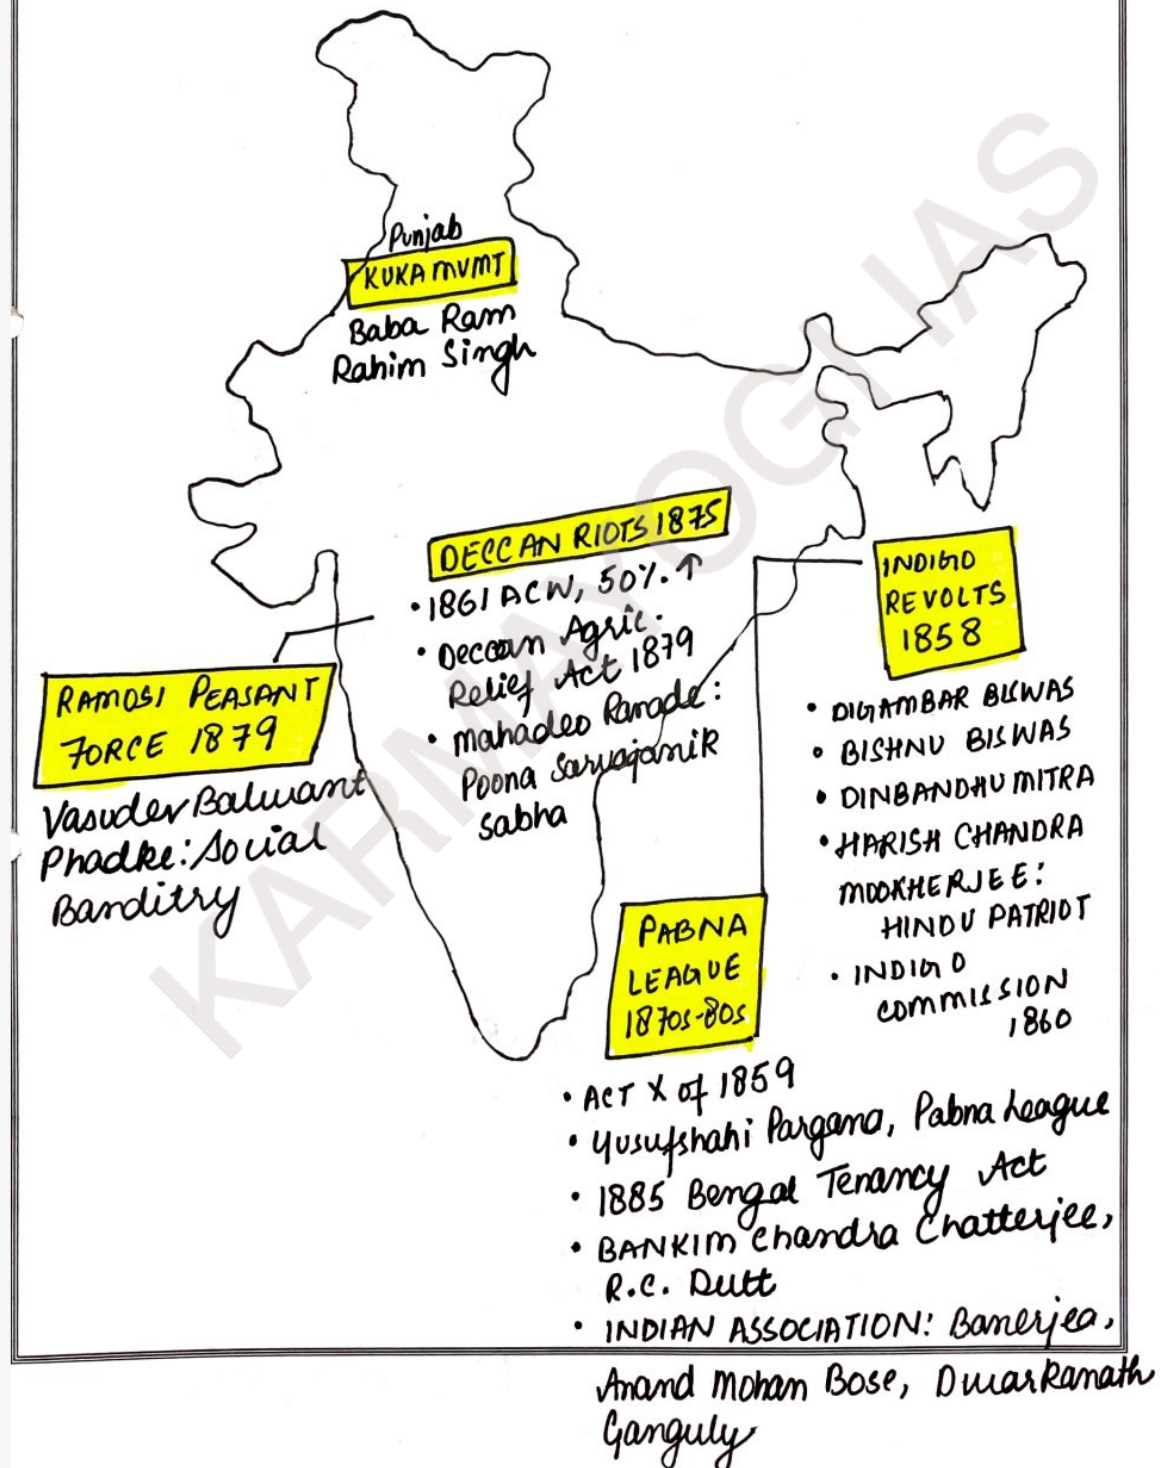 Punjab
KUKA MVMT
Baba Ram
Rahim Singh
DECCAN RIOTS 1875
• 1861 ACW, 50% ↑
• Deccan Agric.
Relief Act 1879
• Mahadeo Ranade:
Poona Sarvajanik
Sabha
RAMOSI PEASANT
FORCE 1879
Vasudev Balwant
Phadke: Social
Banditry
INDIGO
REVOLTS
1858
• DIGAMBAR BISWAS
• BISHNU BISWAS
• DINBANDHU MITRA
• HARISH CHANDRA
MOOKHERJEE:
HINDU PATRIOT
• INDIGO
COMMISSION
1860
PABNA
LEAGUE
1870s-80s
• ACT X of 1859
• Yusufshahi Pargana, Pabna League
• 1885 Bengal Tenancy Act
• BANKIM Chandra Chatterjee,
R.C. Dutt
• INDIAN ASSOCIATION: Banerjea,
Anand Mohan Bose, Dwarkanath
Ganguly
KARMAYOGI IAS